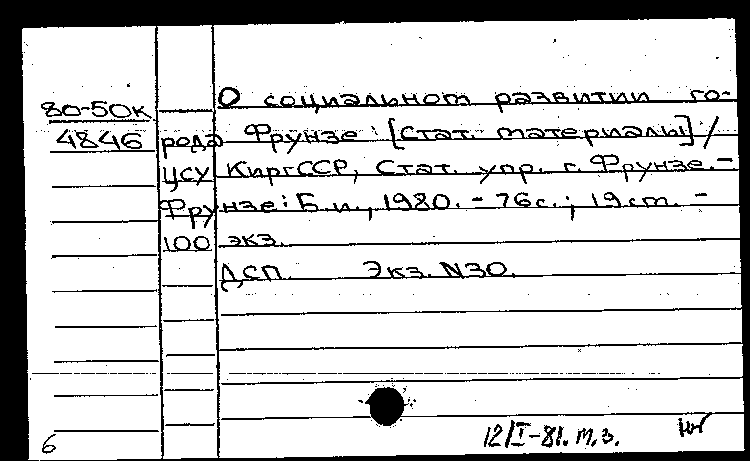 80-50к
4846
О социальном развитии го-
рода Фрунзе: [Стат. материалы] /
ЦСУ КиргССР, Стат. упр. г. Фрунзе. –
Фрунзе: Б. и., 1980. – 76с.; 19 см. –
100 экз.
ДСП. Экз. N30.
6
12/I-81. т.з.